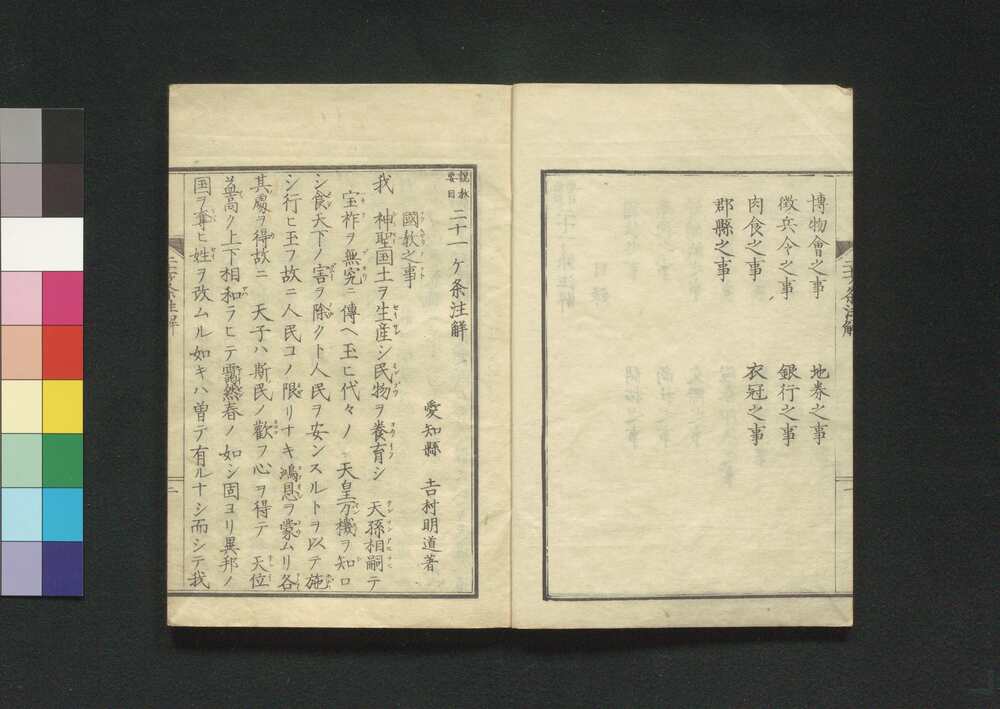 博物會之事
地券之事
徴兵令之事
銀行之事
肉食之事
衣冠之事
郡縣之事
条注解
一
説教要目 二十一ヶ条注解
愛知縣 吉村明道著
國教之事
我 神聖国土ヲ生産シ民物ヲ養育シ 天孫相嗣テ
宝祚ヲ無究ニ傳ヘ玉ヒ代々ノ 天皇万機ヲ知ロ
シ食天下ノ害ヲ除クト人民ヲ安ンスルトヲ以テ施
シ行ヒ玉フ故ニ人民コノ限リナキ鴻恩ヲ蒙ムリ各
其處ヲ得故ニ 天子ハ斯民ノ歡フ心ヲ得テ 天位
益高ク上下相和ラヒテ靄然春ノ如シ固ヨリ異邦ノ
国ヲ奪ヒ姓ヲ改ムル如キハ曽テ有ルナシ而シテ我
条注解